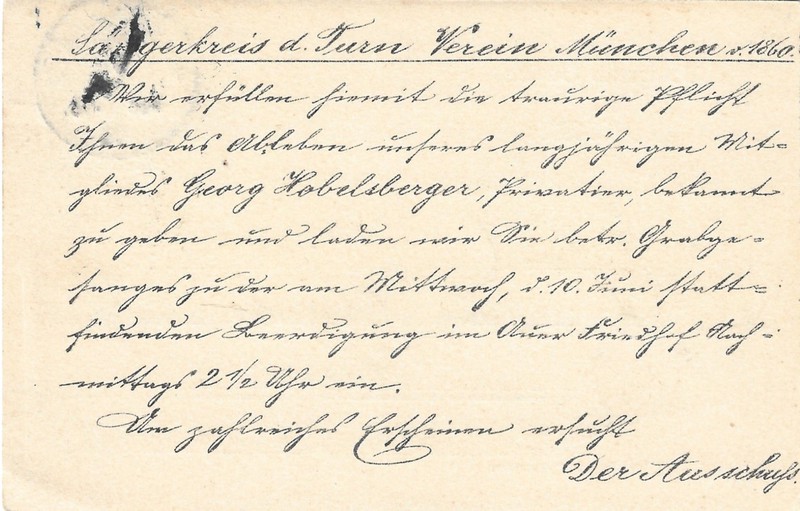 Sängerkreis d. Turn Verein München v. 1860.
Wir erfüllen hiemit die traurige Pflicht
Ihnen das Ableben unseres langjährigen Mit-
gliedes Georg Habelsberger, Privatier, bekannt
zu geben und laden wir Sie betr. Grabge-
sanges zu der am Mittwoch, d. 10. Juni statt-
findenden Beerdigung im Auer Friedhof Nach-
mittags 2 1/2 Uhr ein.
Um zahlreiches Erscheinen ersucht
Der Ausschuß.